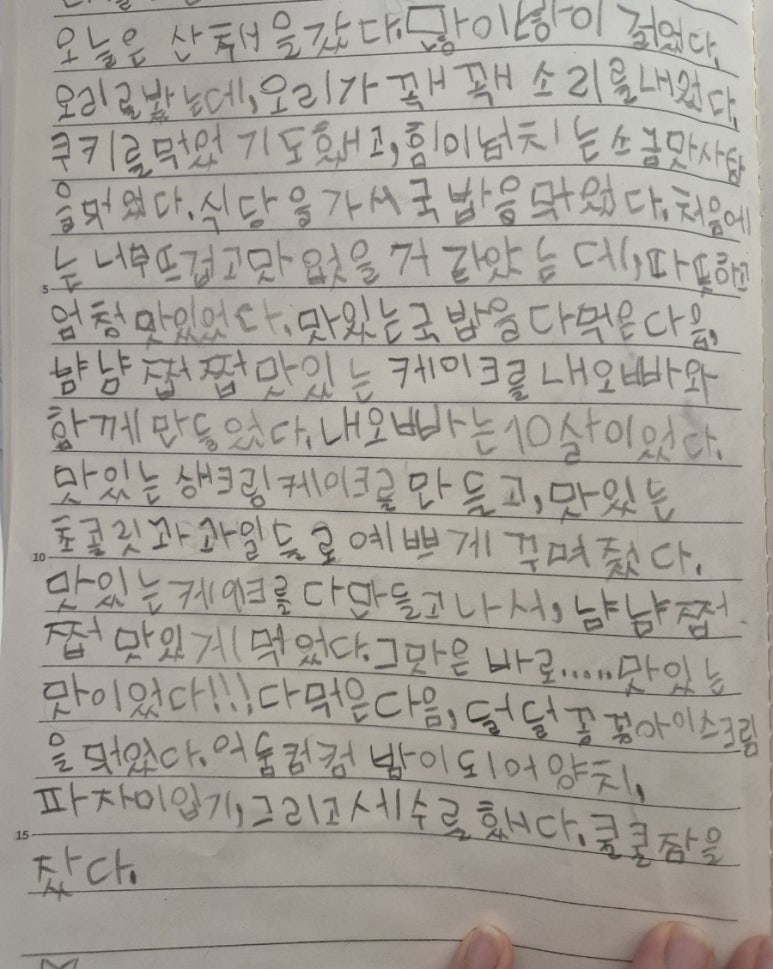 오늘은 산책을갔다.많이많이 걸었다.
오리를봤는데,오리가 꽥꽥 소리를내었다,
쿠키를먹었 기도했고,힘이넘치는소금맛사탕
을먹었다.식당을가서국밥을먹었다.처음에
는 너무뜨겁고맛없을거 같았는데,따뜻하고
엄청맛있었다.맛있는국밥을다먹은다음,
냠냠쩝쩝맛있는 케이크를내오빠와
함께만들었다.내오빠는10살이었다.
맛있는생크림케이크를만들고,맛있는
초콜릿과과일들로예쁘게 꾸며줬다.
맛있는케이크를다만들고나서,냠냠쩝
쩝 맛있게먹었다.그맛은 바로.....맛있는
맛이었다!!!다먹은다음,덜덜꽁꽁아이스크림
을먹었다.어둠컴컴 밤이되어양치,
파자미입기,그리고세수를했다.쿨쿨잠을
잤다.